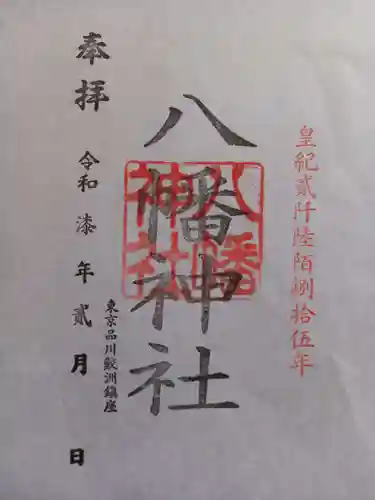 皇紀貳阡陸陌捌拾伍年
八幡神社
八幡神社
東京品川鮫洲鎮座
奉拝
令和漆年貳月 日